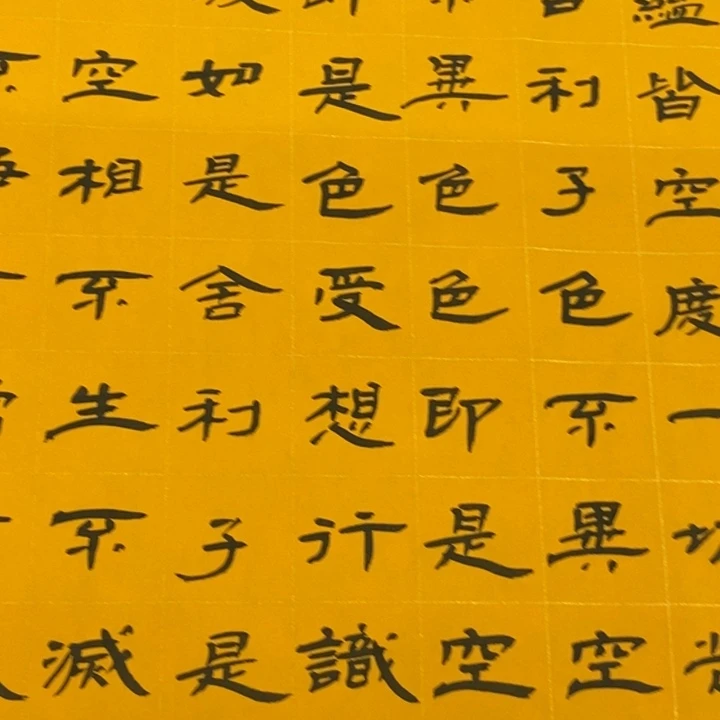 皆空度一
利子色不異空
異色色即是空
是色受想行識
如是舍利子是
空相不生不滅